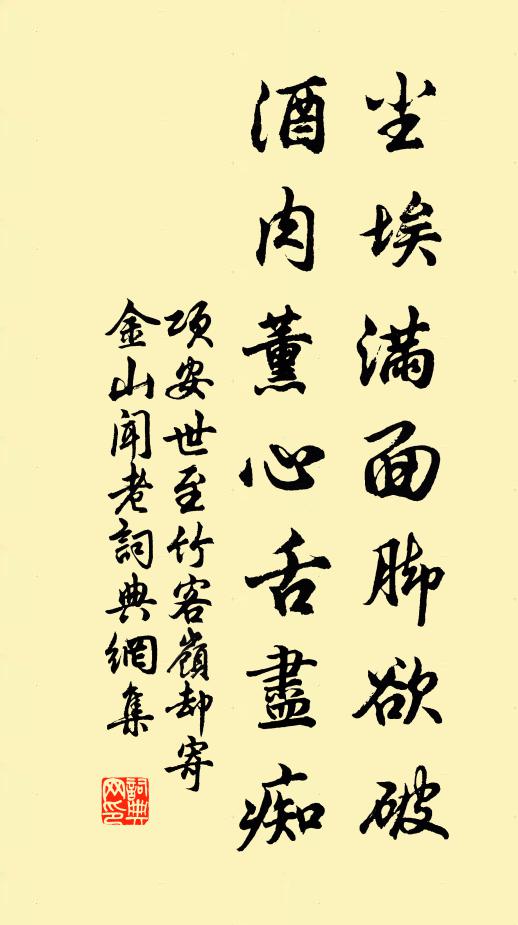 尘埃满面脚欲破
酒肉薰心舌盡痴
项安世至竹客嶺却寄
金山闻老詞典網集
詞典网印